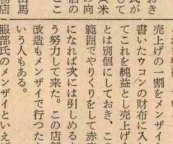 おき
氏が
売上げの一割をメンザイ
書いたウコンの財布に入
てこれを純益とし売上げ
とは別個にしておき、こ
範囲でやりくりをして赤
になれば次には引しめる
う努力して来た。この店
改造もメンザイで行つた
いう人もある。
服部氏のメンザイといえ